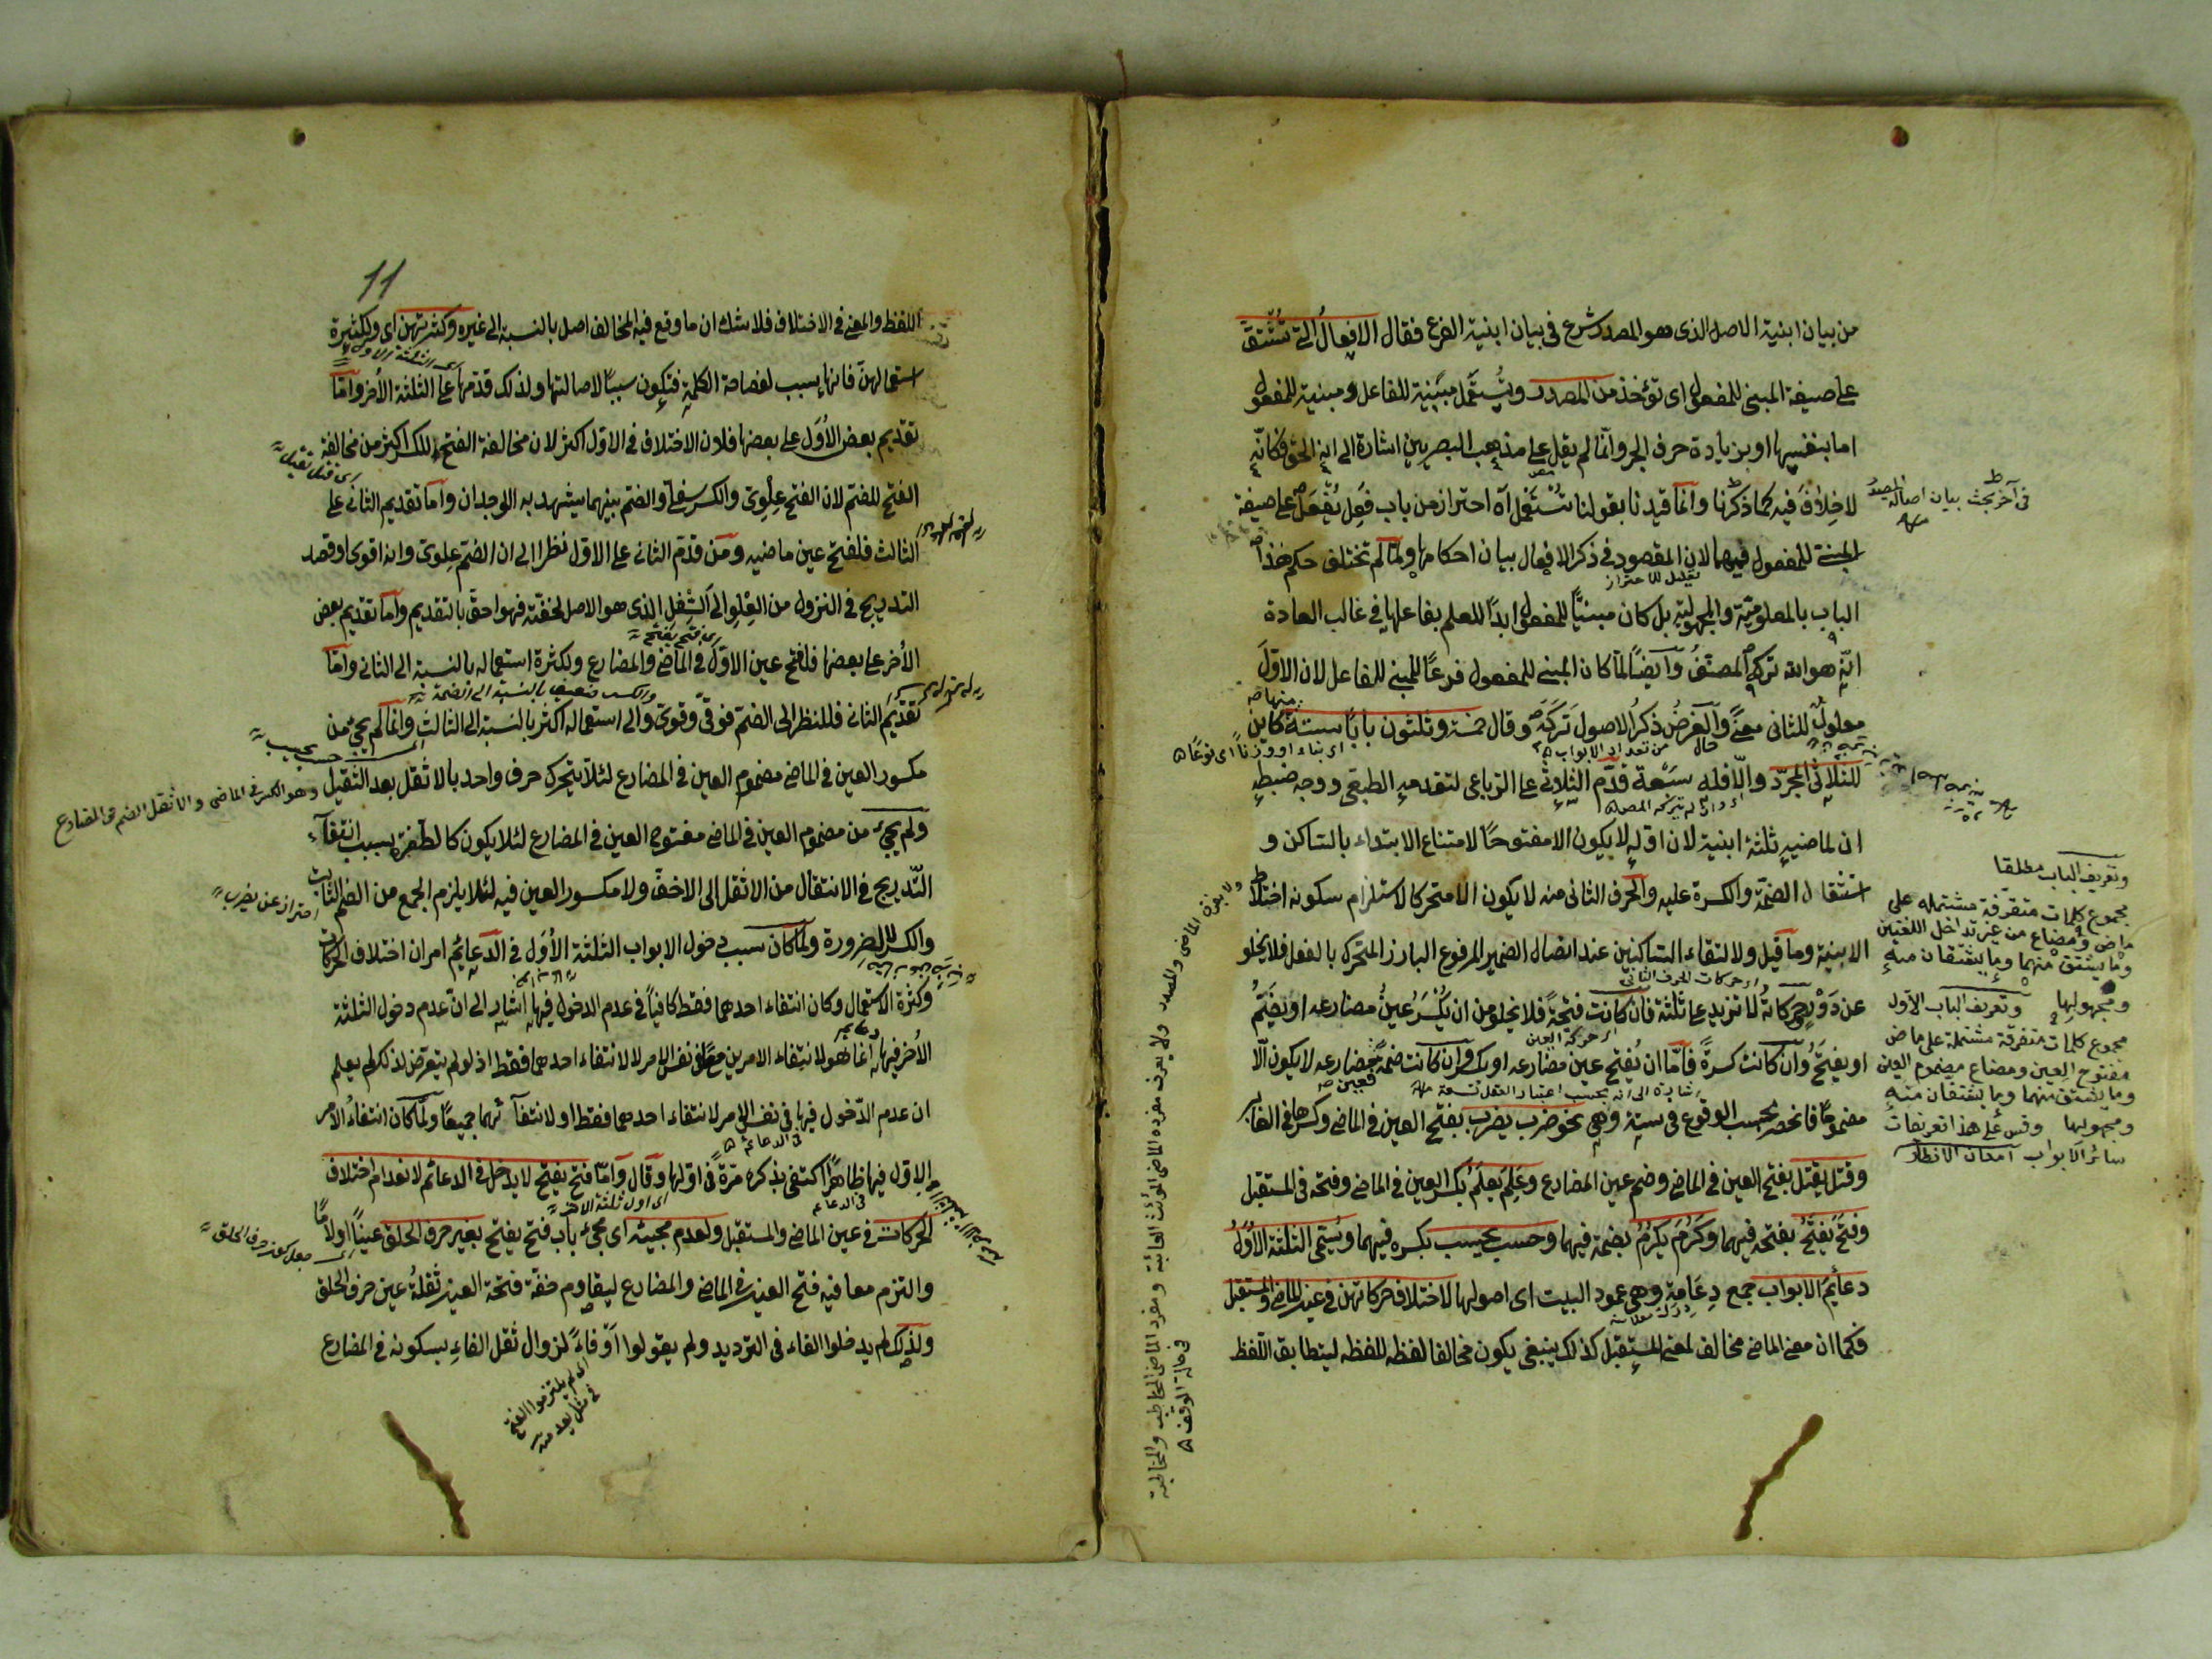 من بيان ابنية الاصل الذى هو المصدر شرع فى بيان ابنية الفرع فقال الافعالُ التى تُشْتَقُّ
على صيغة المبنى للمفعول اى تؤخذ من المصدر ويُستعمل مبنية للفاعل ومبنية للمفعول
اما بنفسها او بزيادة حرف الجر وانما لم يقل على مذهب البصريين اشارة الى انه الحق فكانّه
لا خِلافَ فيه كما ذكرنا وانما قيدنا بقولنا تستعمل آه احتراز من باب فُعِلَ يُفْعَلُ على صيغة
المبنى للمفعول فيهما لان المقصود فى ذكر الافعال بيان احكامها ولما لم تختلف حكم هذا
الباب بالمعلومية والمجهولية بل كان مبنيًّا للمفعول ابدًا للعلم بفاعلها فى غالب العادة
انّه هو الله تركه المصنفُ وايضًا لما كان المبنى للمفعول فرعًا للمبنى للفاعل لان الاوّلَ
معلول للثانى معنًى والغرضُ ذكرُ الاصول تَرَكَهُ وقال خمسة وثلثون بابًا ستة كائن
للثلاثى المجرّد والّا فله سَبْعة قدّم الثلاثىَّ على الرباعى لتقدمه الطبعى ووجه ضبطه
ان لماضيه ثلثة ابنية لان اوله لا يكون الا مفتوحًا لامتناع الابتداء بالساكن و
استثقال الضمّة والكسرة عليه والحرف الثانى منه لا يكون الا متحركا لاستلزام سكونه اختلاط
الابنية وما قيل ولالتقاء الساكنين عند اتصال الضمير المرفوع البارز المتحرك بالفعل فلا يخلو
عن دَوْرٍ وحركاتهُ لا تزيد على ثلثة فان كانت فتحةً فلا يخلو من ان يُكْسَرَ عينُ مضارعه او يضَمَّ
او يفتَحَ وان كانت كسرةً فامّا ان يُفتح عين مضارعه او يكسر وان كانت ضمة فعين مضارعه لا يكون الّا
مضمومًا فانحصر بحسب الوقوع فى ستة وهى نحو ضرب يضرب بفتح العين فى الماضى وكسرها فى الغابر
وقتل يقتل بفتح العين فى الماضى وضم عين المضارع وعَلِمَ يَعلَمُ بكسر العين فى الماضى وفتحه فى المستقبل
وفتحَ يَفتَحُ بفتحه فيهما وكَرُمَ يكرُمُ بضمه فيهما وحسب يحسب بكسره فيهما ويُسمّى الثلثة الاُوَلُ
دعائمَ الابواب جمع دِعَامة وهى عمود البيت اى اصولها لاختلاف حركاتهن فى عين الماضى والمستقبل
فكما ان معنى الماضى مخالف لمعنى المستقبل كذلك ينبغى يكون مخالفا لفظه للفظه ليتطابق اللّفظ
فى آخر بحث بيان اصالة المصدر
تعليل للاحتراز
وتعريف الباب مطلقا
مجموع كلمات متفرقة مشتمله على
ماض ومضارع من غير تداخل اللغتين
وما يشتق منهما وما يشتقان منه
ومجهولها وتعريف الباب الاول
مجموع كلمات متفرقة مشتملة على ماض
مفتوح العين ومضارع مضموم العين
وما يشتق منهما وما يشتقان منه
ومجهولها وقس على هذا تعريفات
سائر الابواب امعان الانظار
فى حالة الوقف
11
اللفظ والمعنى فى الاختلاف فلا شك ان ما وقع فيه المخالف اصل بالنسبة الى غيره وكثرتهن اى ولكثرة
استعمالهنّ فانها بسبب لفصاحة الكلمة فتكون سببًا لاصالتها ولذلك قدّمها على الثلثة الاُخر وامّا
تقديم بعض الاُوَل على بعضها فلان الاختلاف فى الاول اكثر لان مخالفة الفتح للكسر اكثر من مخالفة
الفتح للضم لان الفتح عِلْوِىّ والكسر سفلىّ والضم بينهما يشهد به الوجدان واما تقديم الثانى على
الثالث فلفتح عين ماضيه ومن قدّم الثانى على الاول نظرا الى ان الضم عِلوىّ وانه اقوى او قصد
التدريج فى النزول من العِلْوِ الى السِفل الذى هو الاصل لخفّته فهو احق بالتقديم واما تقديم بعض
الاُخر على بعضها فلفتح عين الاوّل فى الماضى والمضارع ولكثرة استعماله بالنسبة الى الثانى وامّا
تقديم الثانى فللنظر الى الضم فوقىّ وقوىّ والى استعماله اكثر بالنسبة الى الثالث وانما لم يجئ من
مكسور العين فى الماضى مضموم العين فى المضارع لئلا يتحرك حرف واحد بالاثقل بعد الثقيل
ولم يجئ من مضموم العين فى الماضى مفتوح العين فى المضارع لئلا يكون كالطفرة بسبب انتفاء
التّدريج فى الانتقال من الاثقل الى الاخفّ ولا مكسور العين فيه لئلا يلزم الجمع من الضم الثابت
والكسر للضرورة ولما كان سبب دخول الابواب الثلثة الاُوَل فى الدعائم امران اختلاف الحركات
وكثرة الاستعمال وكان انتفاء احدهما فقط كافيًا فى عدم الدخول فيها اشار الى انّ عدم دخول الثلثة
الاُخر فيها انما هو لانتفاء الامرين معًا فى نفس الامر لا لانتفاء احدهما فقط اذ لو لم يتعرض لذلك لم يعلم
ان عدم الدّخول فيها فى نفس الامر لانتفاء احدهما فقط او لانتفائهما جميعًا ولمّا كان انتفاءُ الامر
الاوّل فيها ظاهرًا اكتفى بذكره مرّةً فى اوّلها وقال وامّا فتح يفتح لا يدخل فى الدعائم لانعدام اختلاف
الحركات فى عين الماضى والمستقبل ولعدم مجيئه اى مجىء باب فتح يفتح بغير حرف الحلق عينًا او لامًا
والتزم معا فيه فتح العين فى الماضى والمضارع ليقاوم خفّة فتحة العين ثقلةُ عين حرف الحلق
ولذلك لم يدخلوا الفاء فى الترديد ولم يقولوا اَوْ فاءً لزوال ثقل الفاءِ بسكونه فى المضارع
اى فتح يفتح
وهو الكسر فى الماضى والاثقل الضم فى المضارع
احتراز عن يضرب
اى لم يلتزموا الفتح